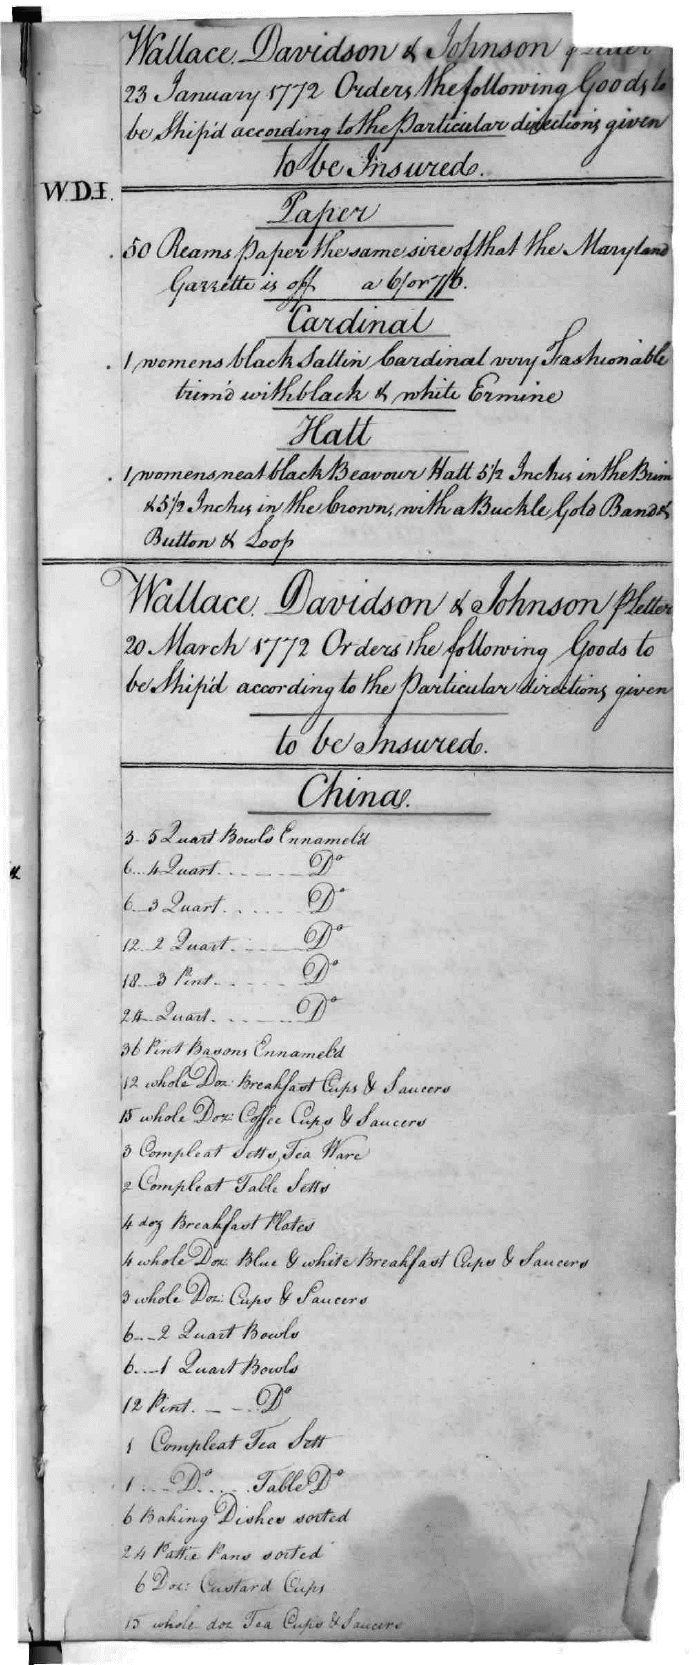 Wallace Davidson & Johnson
23 January 1772 Orders the following Goods to
be Ship'd according to the Particular directions given
to be Insured.
W.D.I.
Paper
50 Reams Paper the same size of that the Maryland
Gazzette is off a 6/ or 7/6.
Cardinal
1 womens black Sattin Cardinal very Fashionable
trim'd with black & white Ermine
Hatt
1 womens neat black Beavour Hatt 5 1/2 Inches in the Brim
& 5 1/2 Inches in the Crown, with a Buckle Gold Band &
Button & Loop
Wallace Davidson & Johnson P Letter
20 March 1772 Orders the following Goods to
be Ship'd according to the Particular directions given
to be Insured.
China.
3 - 5 Quart Bowls Ennamel'd
6 .. 4 Quart ....... Do
6 .. 3 Quart ....... Do
12 .. 2 Quart ....... Do
18 .. 3 Pint ....... Do
24 .. Quart ....... Do
36 Pint Basons Ennamel'd
12 whole Doz: Breakfast Cups & Saucers
15 whole Doz: Coffee Cups & Saucers
3 Compleat Setts Tea Ware
2 Compleat Table Setts
4 doz Breakfast Plates
4 whole Doz: Blue & white Breakfast Cups & Saucers
3 whole Doz: Cups & Saucers
6 .. 2 Quart Bowls
6 .. 1 Quart Bowls
12 Pint. _ _ Do
1 Compleat Tea Sett
1 .... Do ..... Table Do
6 Baking Dishes sorted
24 Pattie Pans sorted
6 Doz: Custard Cups
15 whole doz Tea Cups & Saucers